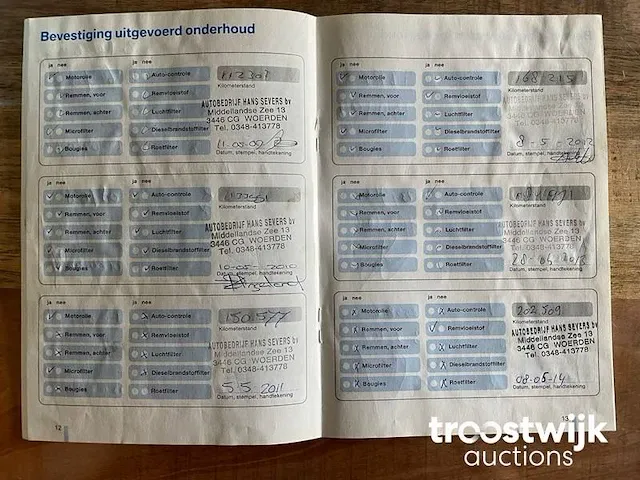 Bevestiging uitgevoerd onderhoud
ja nee ja nee
Motorolie Auto-controle 112307
Kilometerstand
Remmen, voor Remvloeistof
Remmen, achter Luchtfilter
Microfilter Dieselbrandstoffilter
Bougies Roetfilter
AUTOBEDRIJF HANS SEVERS bv
Middellandse Zee 13
3446 CG WOERDEN
Tel. 0348-413778
Datum, stempel, handtekening
ja nee ja nee
Motorolie Auto-controle
Kilometerstand
Remmen, voor Remvloeistof
Remmen, achter Luchtfilter
Microfilter Dieselbrandstoffilter
Bougies Roetfilter
AUTOBEDRIJF HANS SEVERS bv
Middellandse Zee 13
3446 CG WOERDEN
Tel. 0348-413778
10-05-2010
Datum, stempel, handtekening
ja nee ja nee
Motorolie Auto-controle 150577
Kilometerstand
Remmen, voor Remvloeistof
Remmen, achter Luchtfilter
Microfilter Dieselbrandstoffilter
Bougies Roetfilter
AUTOBEDRIJF HANS SEVERS bv
Middellandse Zee 13
3446 CG WOERDEN
Tel. 0348-413778
5-5-2011
Datum, stempel, handtekening
12
ja nee ja nee
Motorolie Auto-controle 168215
Kilometerstand
Remmen, voor Remvloeistof
Remmen, achter Luchtfilter
Microfilter Dieselbrandstoffilter
Bougies Roetfilter
AUTOBEDRIJF HANS SEVERS bv
Middellandse Zee 13
3446 CG WOERDEN
Tel. 0348-413778
8-5-2012
Datum, stempel, handtekening
ja nee ja nee
Motorolie Auto-controle
Kilometerstand
Remmen, voor Remvloeistof
Remmen, achter Luchtfilter
Microfilter Dieselbrandstoffilter
Bougies Roetfilter
AUTOBEDRIJF HANS SEVERS bv
Middellandse Zee 13
3446 CG WOERDEN
Tel. 0348-413778
28-04-2013
Datum, stempel, handtekening
ja nee ja nee
Motorolie Auto-controle 202509
Kilometerstand
Remmen, voor Remvloeistof
Remmen, achter Luchtfilter
Microfilter Dieselbrandstoffilter
Bougies Roetfilter
AUTOBEDRIJF HANS SEVERS bv
Middellandse Zee 13
3446 CG WOERDEN
Tel. 0348-413778
08-05-14
Datum, stempel, handtekening
13
troostwijk
auctions